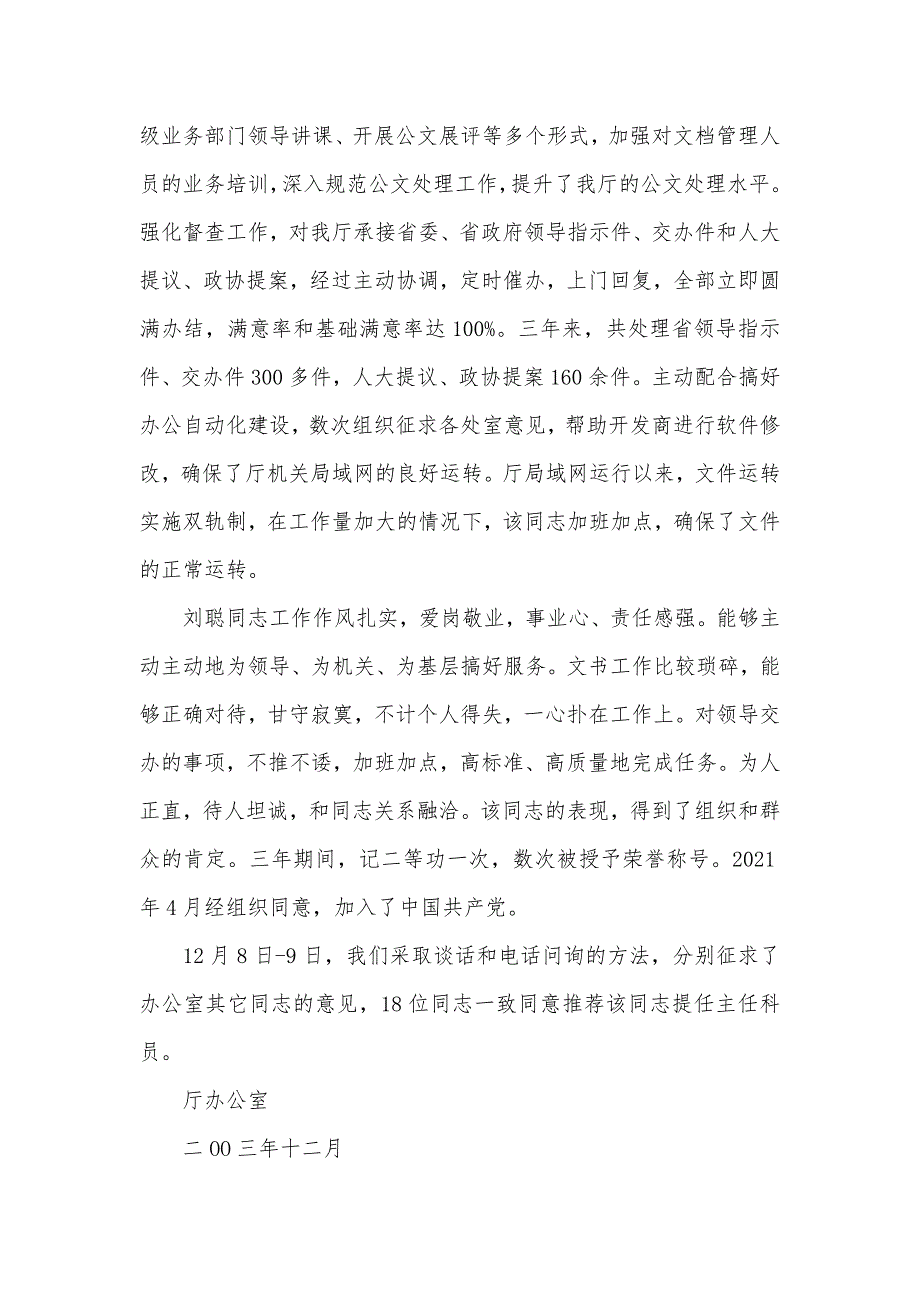 级业务部门领导讲课、开展公文展评等多个形式，加强对文档管理人
员的业务培训，深入规范公文处理工作，提升了我厅的公文处理水平。
强化督查工作，对我厅承接省委、省政府领导指示件、交办件和人大
提议、政协提案，经过主动协调，定时催办，上门回复，全部立即圆
满办结，满意率和基础满意率达 100%。三年来，共处理省领导指示
件、交办件 300 多件，人大提议、政协提案 160 余件。主动配合搞好
办公自动化建设，数次组织征求各处室意见，帮助开发商进行软件修
改，确保了厅机关局域网的良好运转。厅局域网运行以来，文件运转
实施双轨制，在工作量加大的情况下，该同志加班加点，确保了文件
的正常运转。
刘聪同志工作作风扎实，爱岗敬业，事业心、责任感强。能够主
动主动地为领导、为机关、为基层搞好服务。文书工作比较琐碎，能
够正确对待，甘守寂寞，不计个人得失，一心扑在工作上。对领导交
办的事项，不推不诿，加班加点，高标准、高质量地完成任务。为人
正直，待人坦诚，和同志关系融洽。该同志的表现，得到了组织和群
众的肯定。三年期间，记二等功一次，数次被授予荣誉称号。2021
年 4 月经组织同意，加入了中国共产党。
12 月 8 日-9 日，我们采取谈话和电话问询的方法，分别征求了
办公室其它同志的意见，18 位同志一致同意推荐该同志提任主任科
员。
厅办公室
二 OO 三年十二月